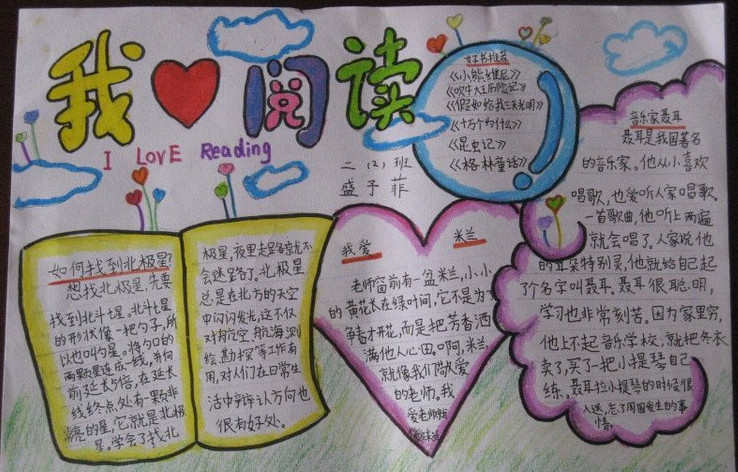 我 阅读
I LOVE Reading
二(2)班
盛予菲
好书推荐
《小熊维尼》
《吹牛大王历险记》
《假如给我三天光明》
《十万个为什么》
《昆虫记》
《格林童话》
如何找到北极星?
想找北极星,先要
找到北斗七星,北斗星
的形状像一把勺子,所
以也叫勺星。将勺口的
两颗星连成一线,并向
前延长5倍,在延长
线终点处有一颗非
常亮的星,它就是北极
星。学会了找北
极星,夜里走路就不
会迷路了。北极星
总是在北方的天空
中闪闪发光,这不仅
对航空,航海,测
绘,勘探等工作有
用,对人们在日常生
活中辩认方向也
很有好处。
我爱 米兰
老师窗前有一盆米兰,小小
的黄花长在绿叶间,它不是为了
争春才开花,而是把芳香洒
满他人心田。啊,米兰,
就像我们敬爱
的老师。我
爱老师
音乐家聂耳
聂耳是我国著名
的音乐家。他从小喜欢
唱歌,也爱听人家唱歌。
一首歌曲,他听上两遍
就会唱了。人家说他
的耳朵特别灵,他就给自己起
了个名字叫聂耳。聂耳很聪明,
学习也非常刻苦。因为家里穷,
他上不起音乐学校,就把冬衣
卖了,买了一把小提琴自己
练。聂耳拉小提琴的时候很
入迷,忘了周围发生的事
情。